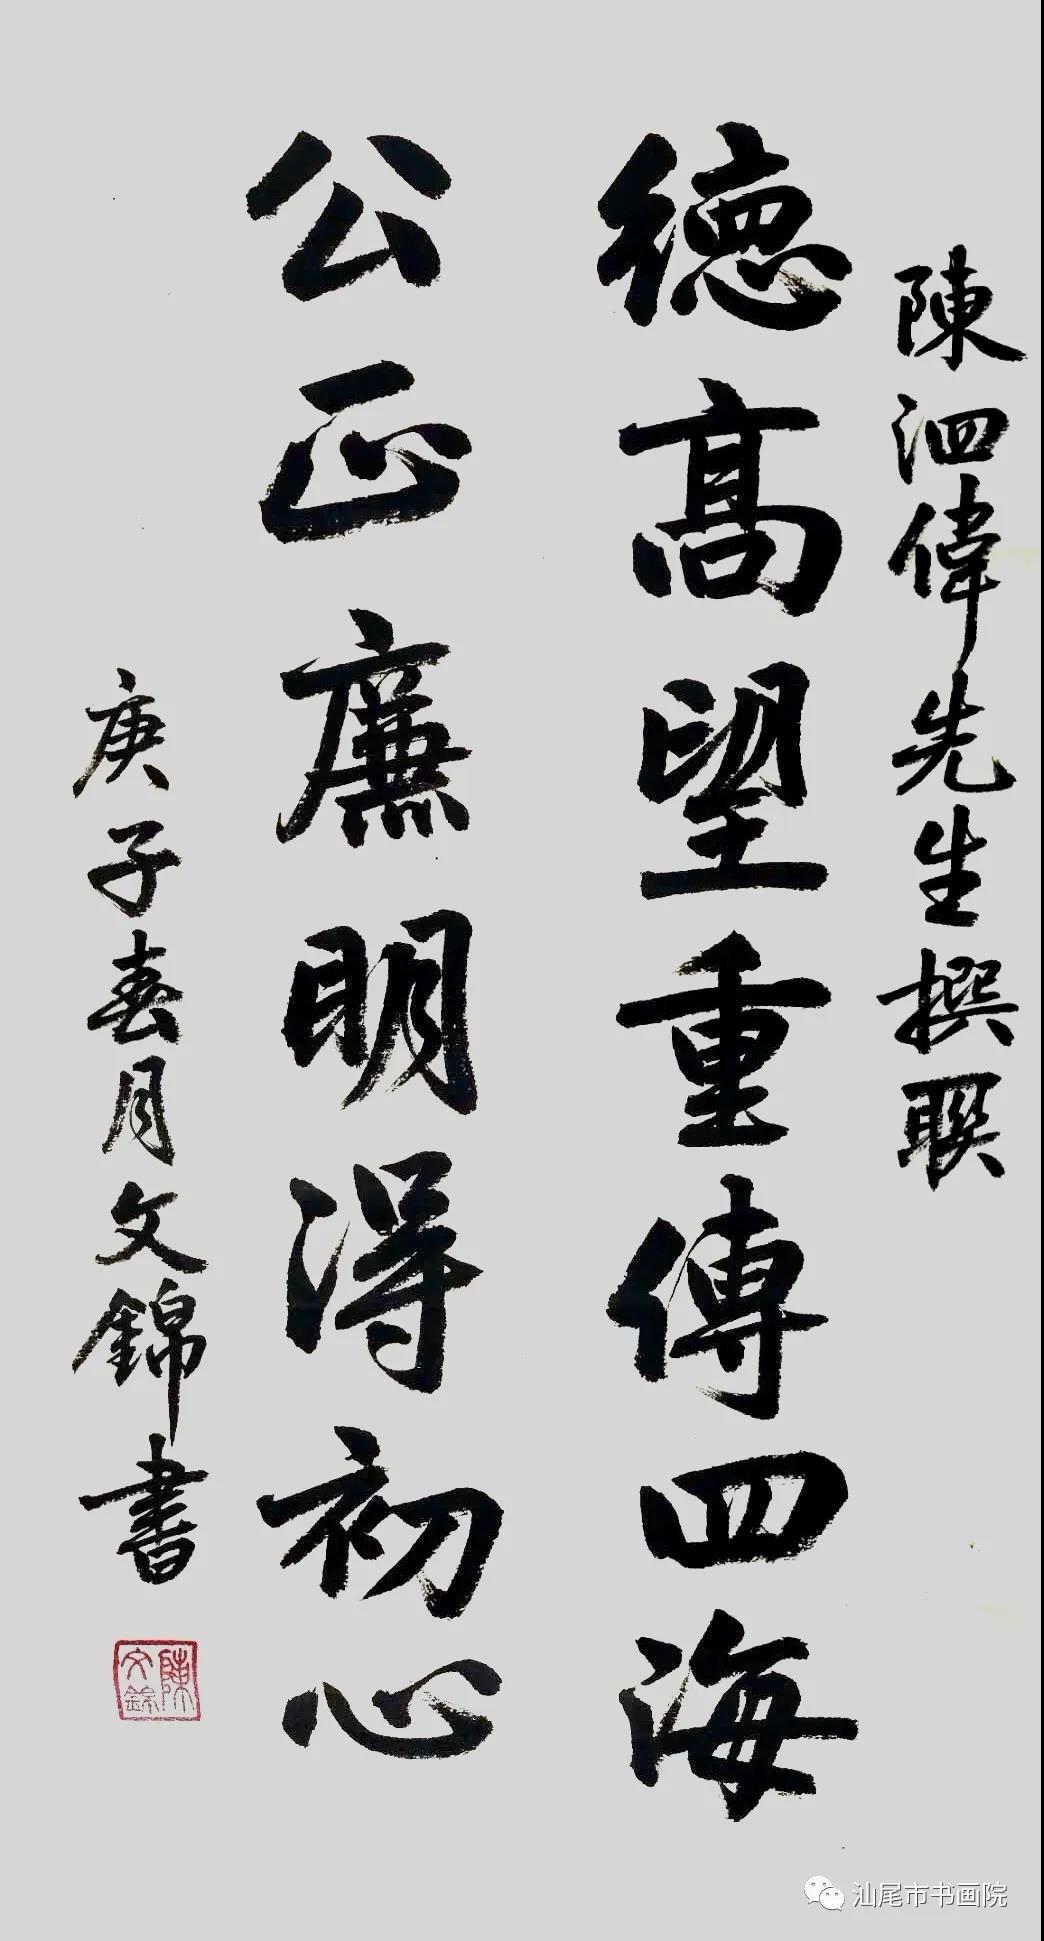 陳泗偉先生撰聯
德高望重傳四海
公正廉明得初心
庚子春月文錦書
陳文錦
汕尾市书画院